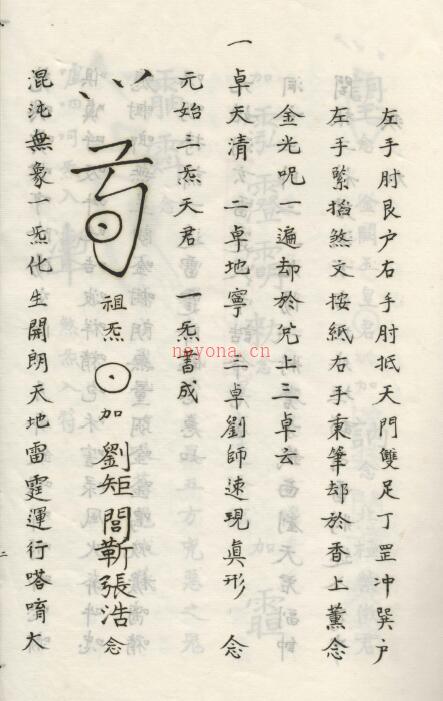 左手肘艮户右手肘抵天門雙足丁罡冲巽户
左手緊掐煞文按紙右手秉筆却於香上薰念
金光呪一遍却於凡上三卓云
一卓天清 二卓地寧 三卓劉師速現眞形 念
元始三炁天君 一炁書成
祖炁 加 劉矩閻蘄張浩 念
混沌無象一炁化生開朗天地雷霆運行嗒唷大
nayona.cn